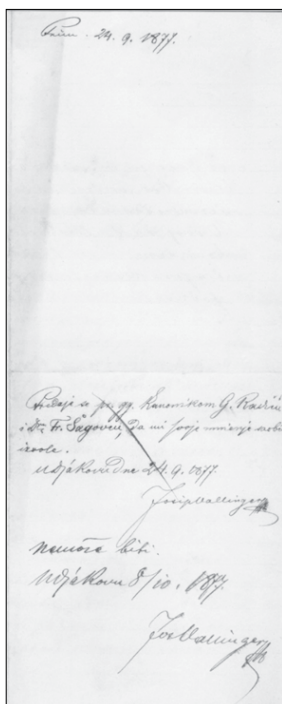 24. 9. 1877.
Predaje se pr. gg. Kanonikom G.
i Dr. Fr. Šagovcu, da mi svoje mnienje
izvole.
U Djakovu Dne 24. 9. 1877.
Josip Wallinger
Nemože biti.
U Djakovu 8/10. 1877.
Jos Wallinger